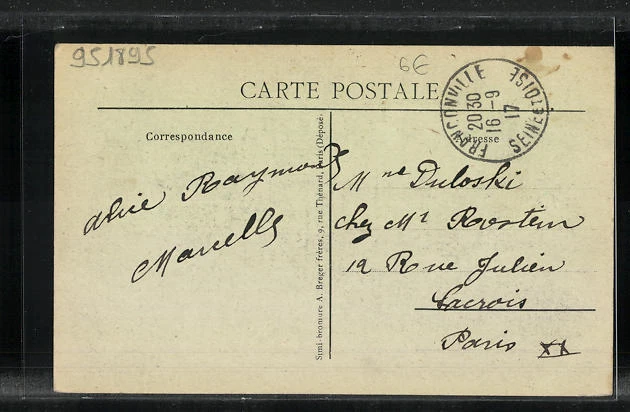 951895
6€
CARTE POSTALE
FRANCONVILLE
20 30
16 - 9
17
SEINE ET OISE
Correspondance
Adresse
Alice Raymond
Marcelle
Simi-bromure A. Breger frères, 9, rue Thénard, Paris (Déposé)
Mme Duloski
chez Mr Rostein
12 Rue Julien
Lacrois
Paris XX